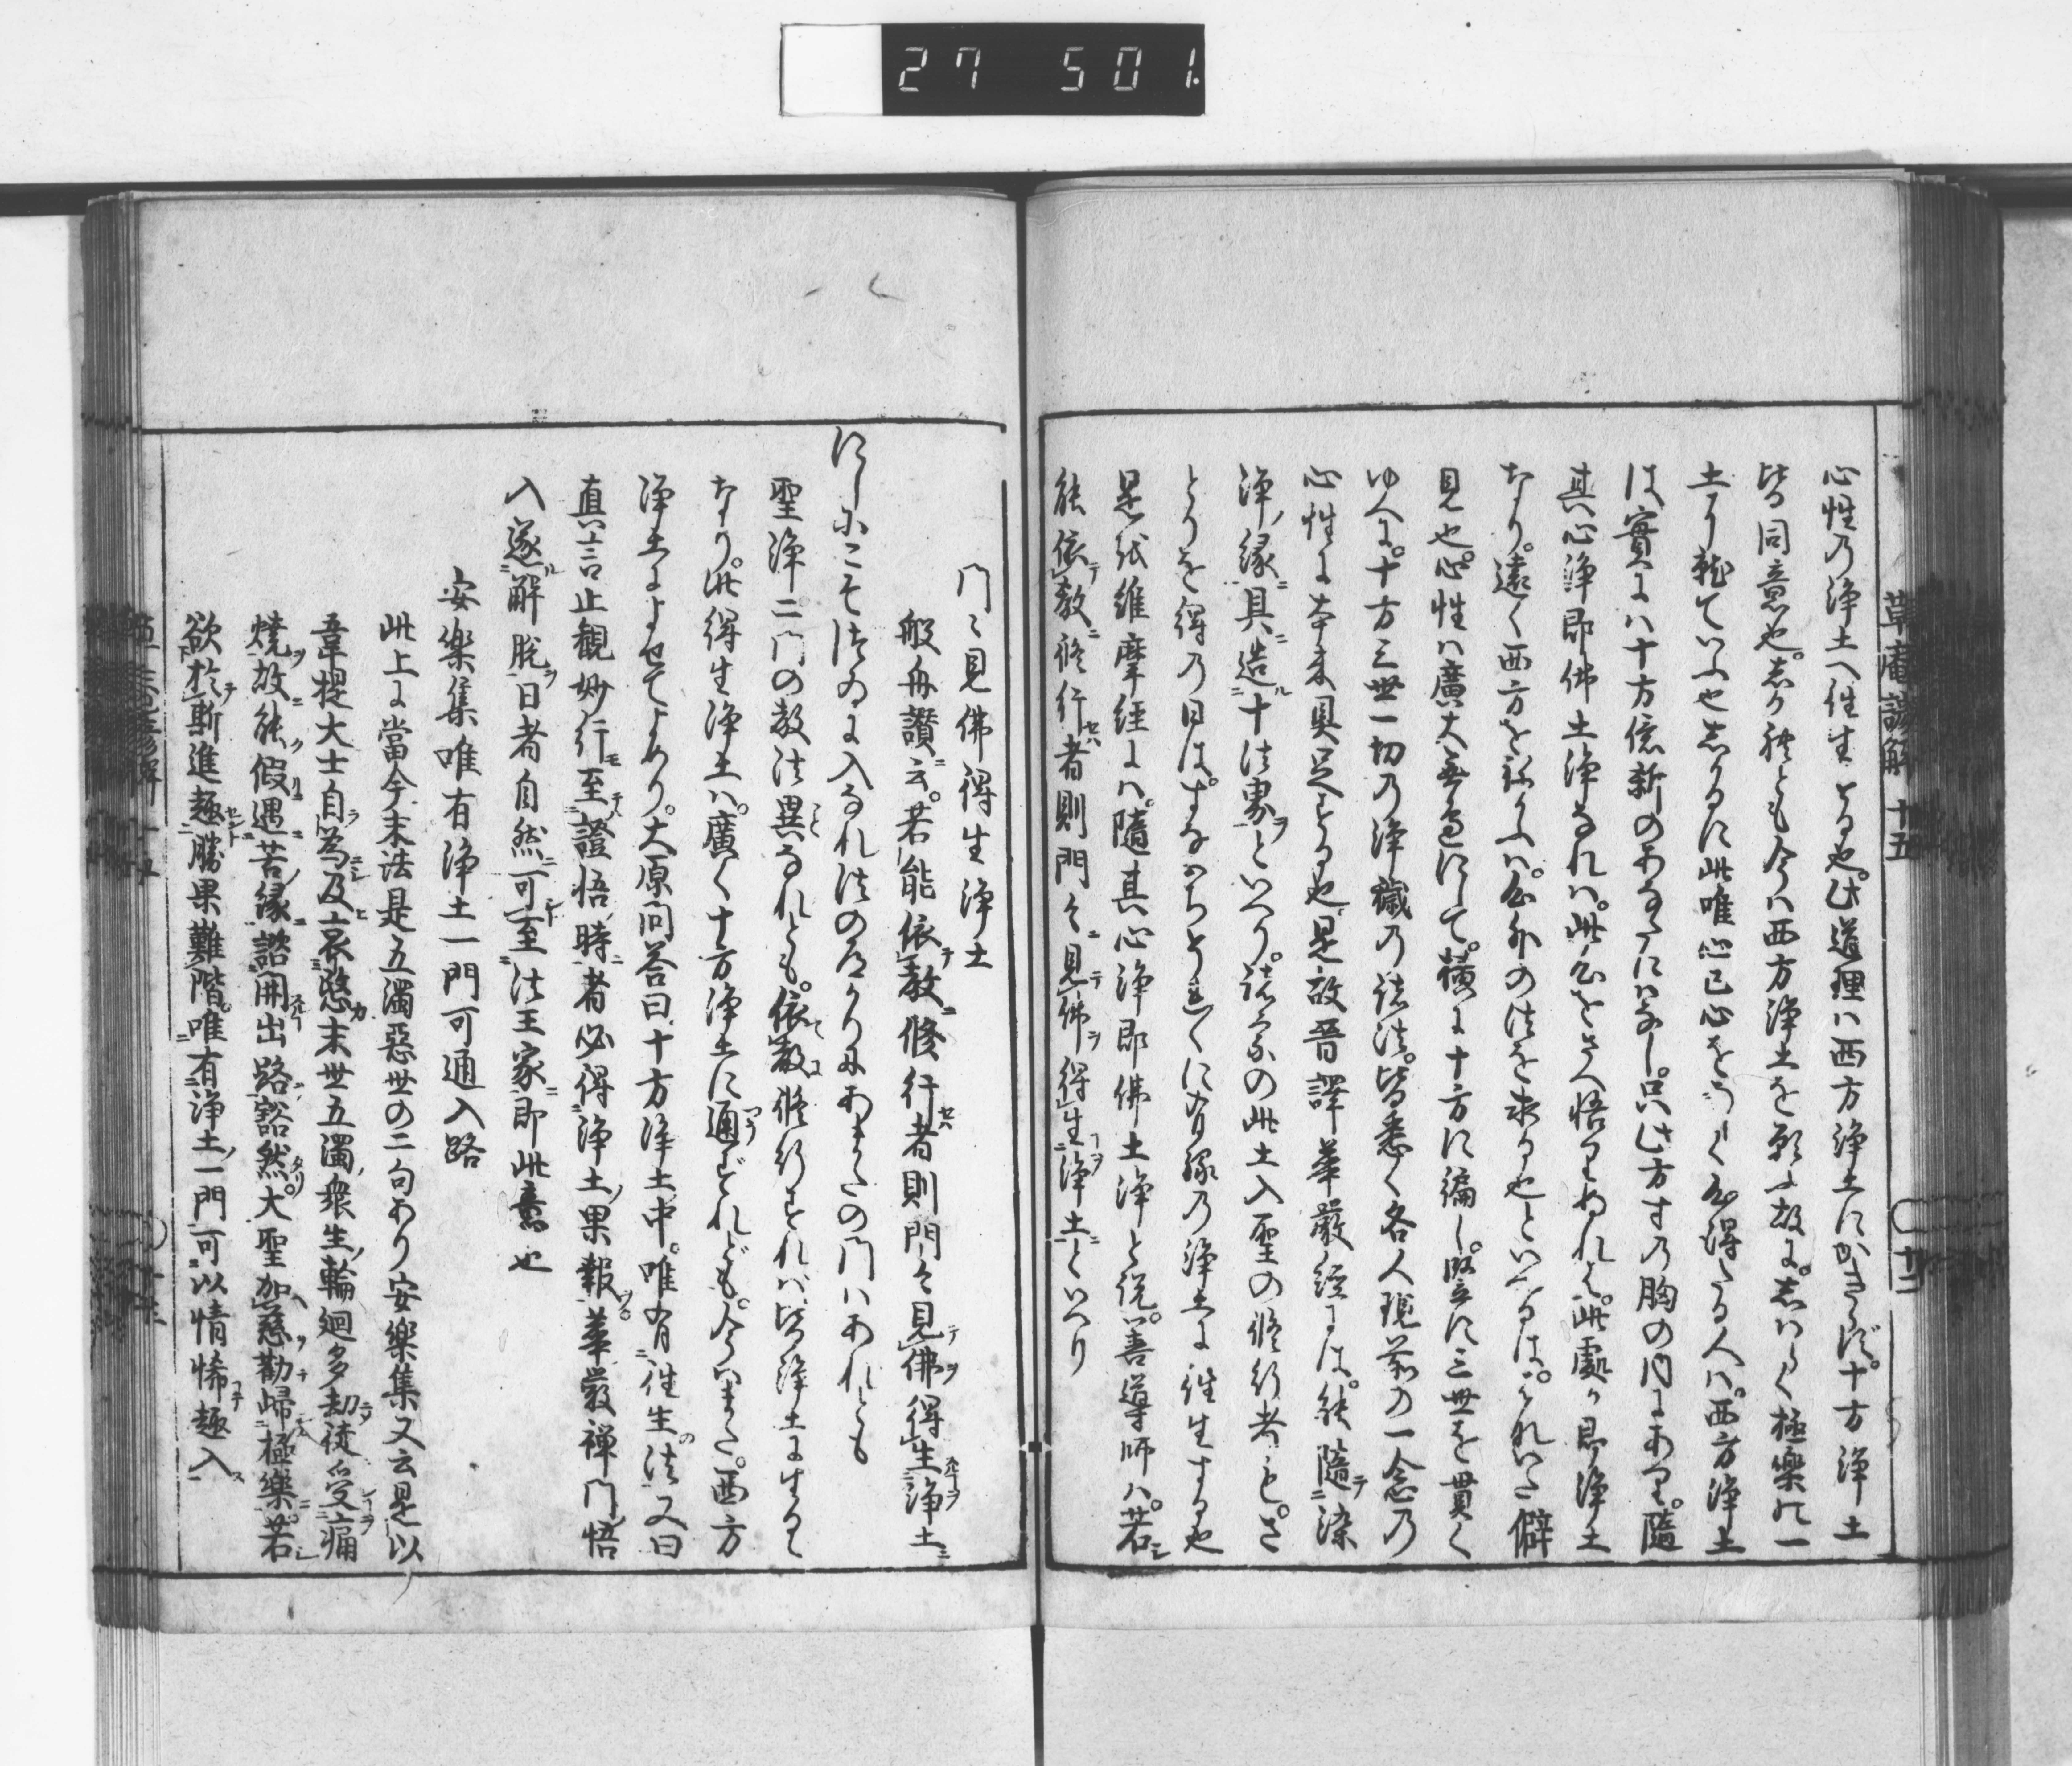 27 501.
草庵諺解 十五
心性乃浄土へ往生とる也此道理ハ西方浄土にかきらず十方浄土
皆同意也しかれとも今ハ西方浄土を願ふ故にしハらく極楽の一
土に就ていふ也しかるに此唯心己心をうらく心得たる人ハ西方浄土
は實にハ十方億刹のあなたにハなし只此方寸乃胸の内にあり隨
其心浄即佛土浄なれハ此心をさへ悟りぬれは此處か即浄土
なり遠く西方をねかふハ心外の法を求る也といへるはこれハた僻
見也心性ハ廣大無邊にして横に十方に徧し竪に三世を貫く
ゆへに十方三世一切乃浄穢乃諸法皆悉く各人現前の一念乃
心性に本来具足とる也是故晋譯華厳経には能隨染
浄縁具造十法界といへり諸宗の此土入聖の修行者もさ
とりを得乃日はすなわち に有縁乃浄土に往生する也
是を維摩経にハ隨其心浄即佛土浄と説善導師ハ若
能依教修行者則門々見佛得生浄土といへり
門々見佛得生浄土
般舟讃云若能依教修行者則門々見佛得生浄土
にしにこそ にに入なれ法の かりにあまたの門ハあれとも
聖浄二門の教法異なれとも依教修行とれハ皆浄土に生るゝ
なり此得生浄土ハ廣く十方浄土に通とれども今ハまた西方
浄土によせてよめり大原問答曰十方浄土中唯有往生法又曰
真言止観妙行至證悟時者必得浄土果報華厳禅門悟
入遂解脱日者自然可至法王家即此意也
安楽集唯有浄土一門可通入路
此上に當今末法是五濁惡世の二句あり安楽集又云是以
韋提大士自為及哀愍末世五濁衆生輪廻多劫徒受痛
燒故能假遇苦縁諮開出路豁然大聖加慈勸歸極樂若
欲於斯進趣勝果難階唯有浄土一門可以情悕趣入